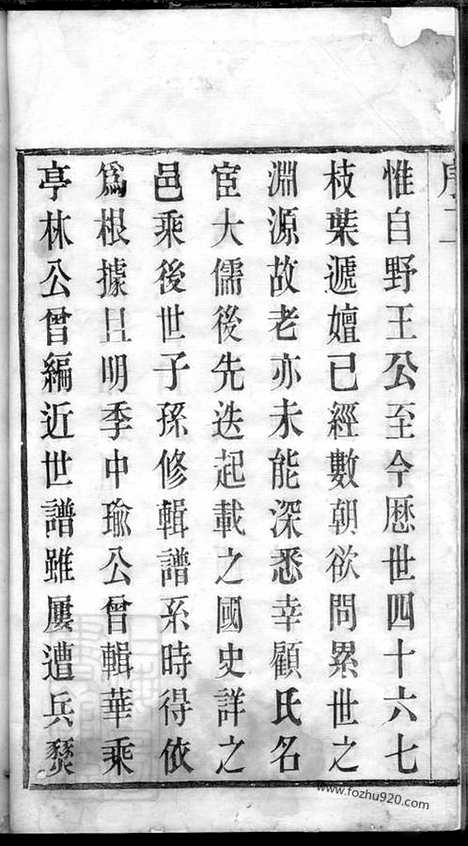 序二
惟自野王公至今歷世四十六七
枝葉遞嬗已經數朝欲問累世之
淵源故老亦未能深悉幸顧氏名
宦大儒後先迭起載之國史詳之
邑乘後世子孫修輯譜系時得依
為根據且明季中瑜公曾輯華乘
亭林公曾編近世譜雖屢遭兵燹
www.fozhu920.com